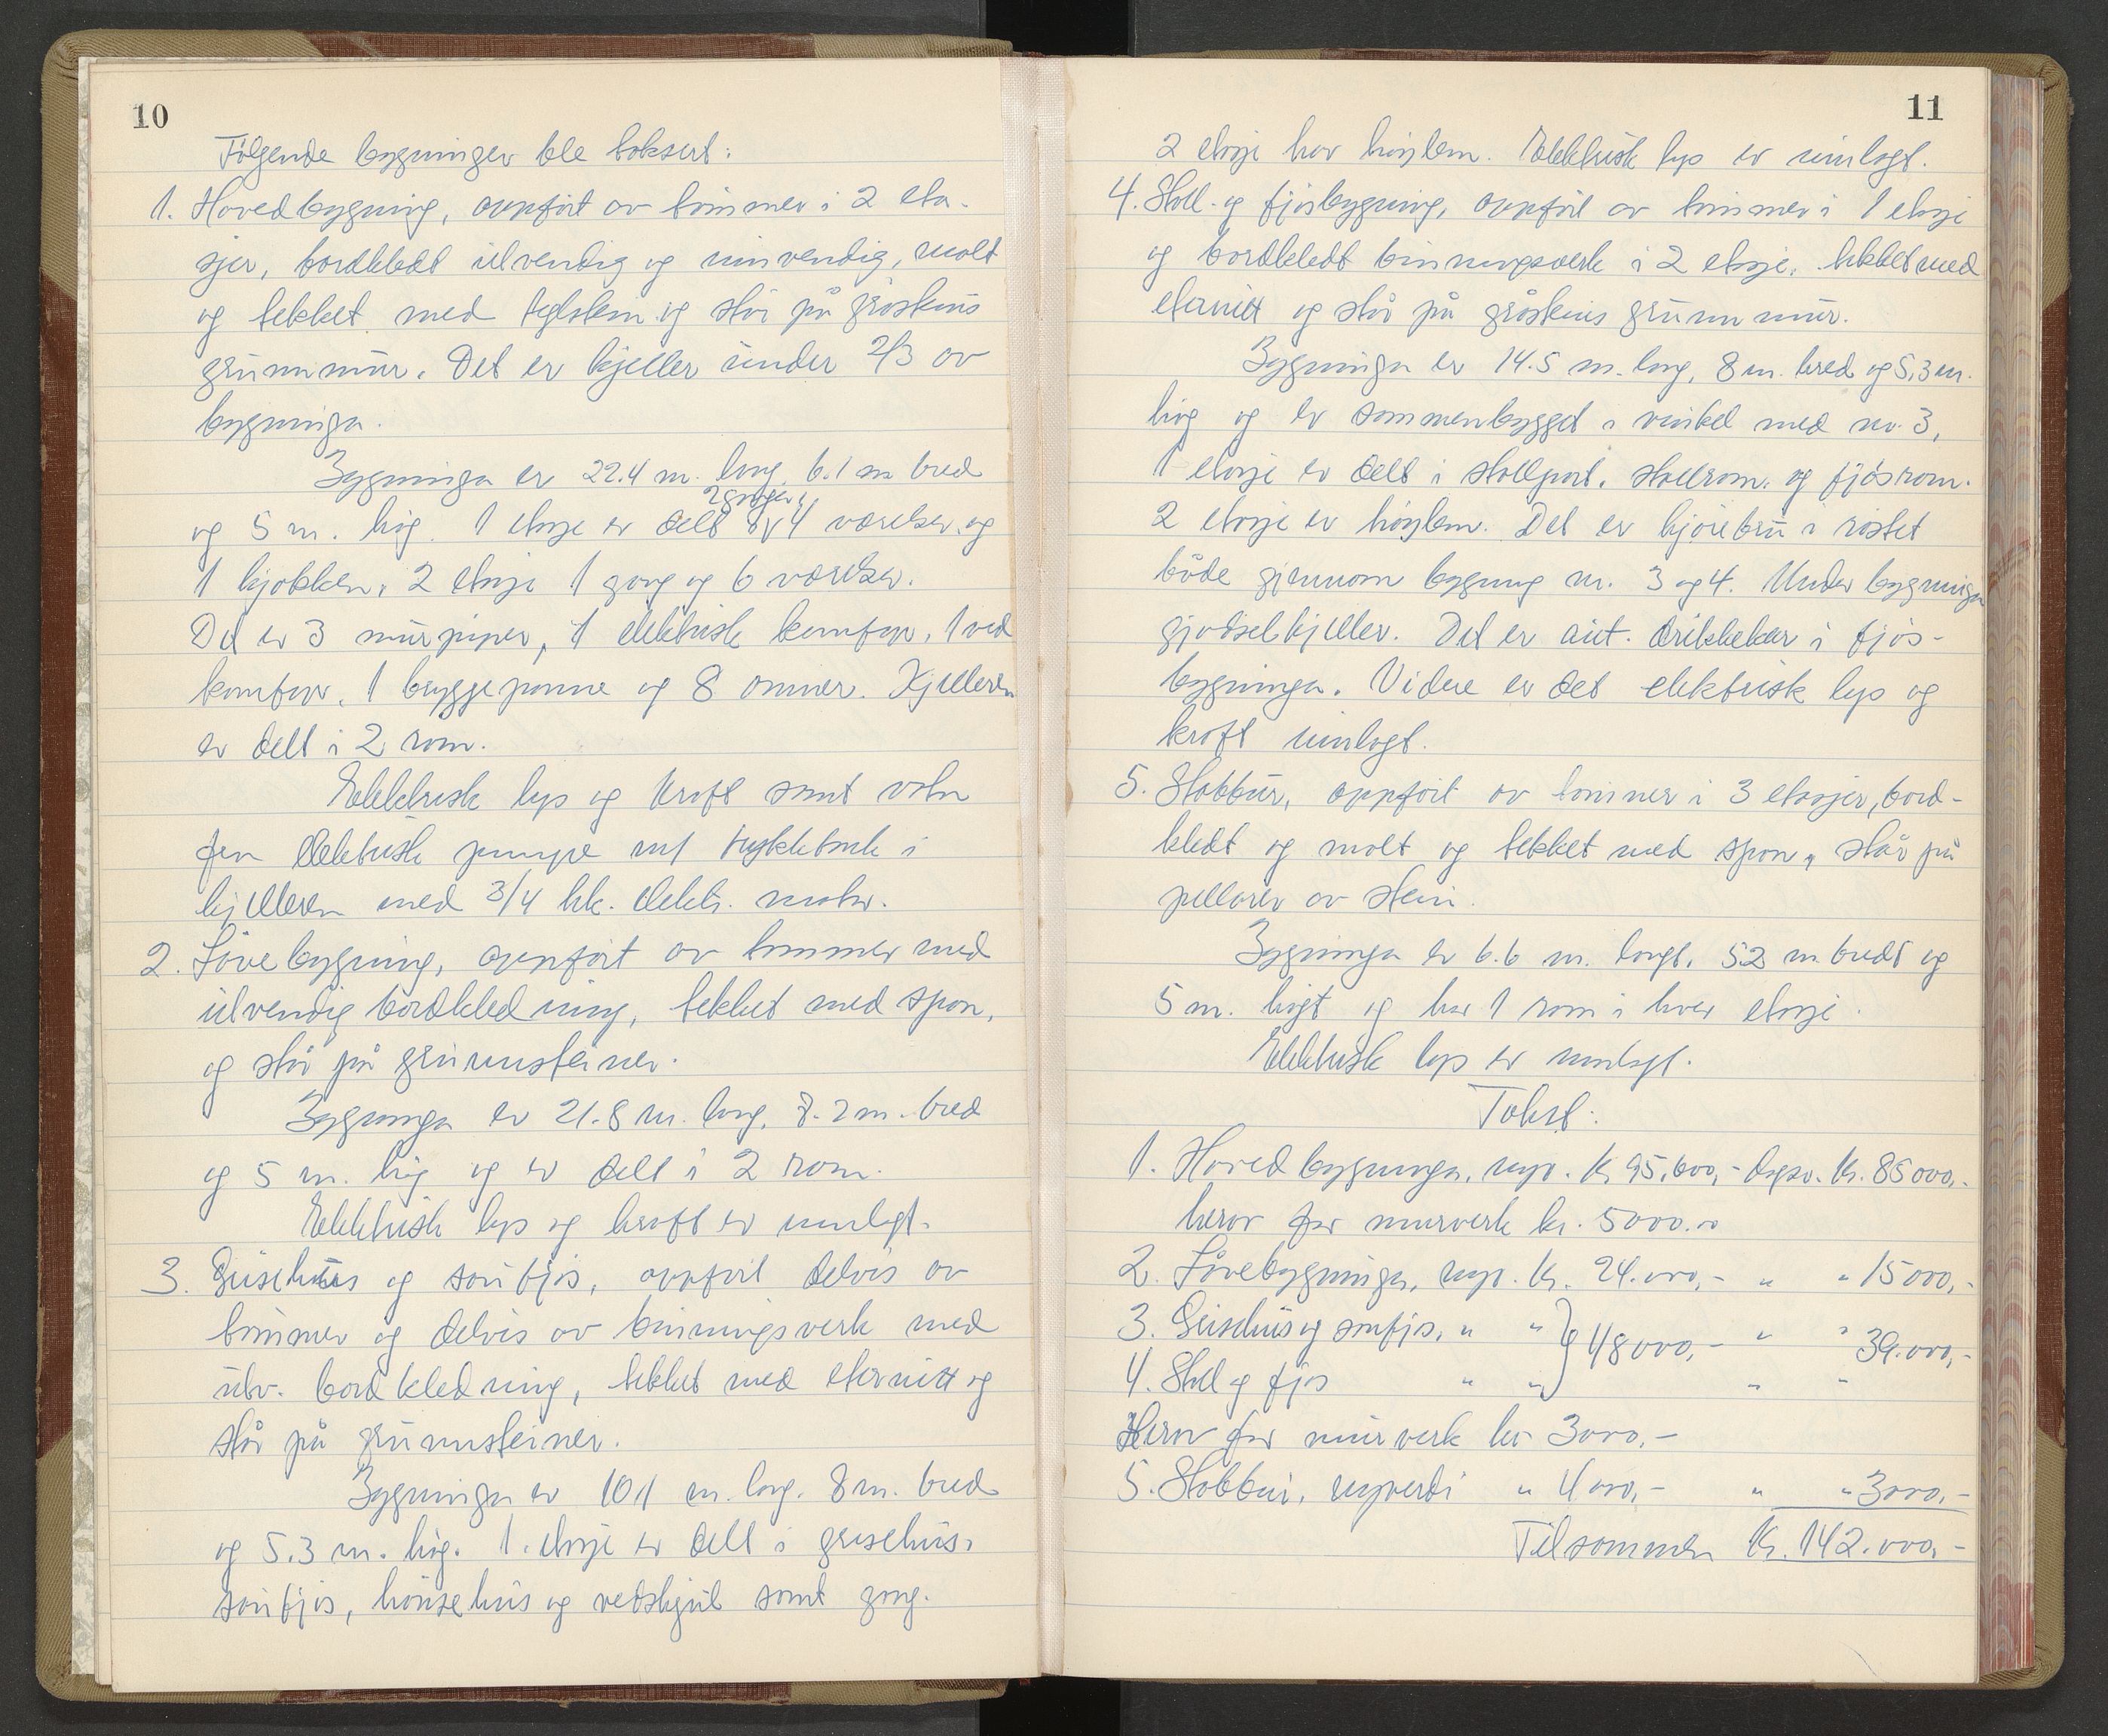 10
Følgende bygninger ble taksert:
1. Hovedbygning, oppført av tømmer i 2 eta-
sjer, bordkledt utvendig og innvendig, malt
og tekket med teglsten og står på gråsteins
grunnmur. Det er kjeller under 2/3 av
bygninga.
Bygninga er 22.4 m. lang, 6.1 m bred
og 5 m. høg. 1 etasje er delt i 2 ganger, 4 værelser og
1 kjøkken, 2 etasje 1 gang og 6 værelser.
Det er 3 murpiper, 1 elektrisk komfyr, 1 ved
komfyr, 1 bryggepanne og 8 omner. Kjelleren
er delt i 2 rom.
Elektrisk lys og kraft samt vatn
fra elektrisk pumpe m/ trykktank i
kjelleren med 3/4 hk. elektr. motor.
2. Låvebygning, oppført av tømmer med
utvendig bordkledning, tekket med spon,
og står på grunnsteiner.
Bygninga er 21.8 m. lang, 8.2 m. bred
og 5 m. høg og er delt i 2 rom.
Elektrisk lys og kraft er innlagt.
3. Grisehus og saufjøs, oppført delvis av
tømmer og delvis av binningsverk med
utv. bordkledning, tekket med eternitt og
står på grunnsteiner.
Bygninga er 10.1 m. lang. 8 m. bred
og 5.3 m. høg. 1. etasje er delt i grisehus,
saufjøs, hønsehus og vedskjul samt gang.
11
2 etasje har høylem. Elektrisk lys er innlagt.
4. Stall- og fjøsbygning, oppført av tømmer i 1 etasje
og bordkledt binningsverk i 2 etasje, tekket med
eternitt og står på gråsteins grunnmur.
Bygninga er 14.5 m. lang, 8 m. bred og 5,3 m.
høg og er sammenbygget i vinkel med nr. 3,
1 etasje er delt i stallport, stallrom, og fjøsrom.
2 etasje er høylem. Det er kjørebru i røstet
både gjennom bygning nr. 3 og 4. Under bygninga
gjødselkjeller. Det er aut. drikkekar i fjøs-
bygninga. Videre er det elektrisk lys og
kraft innlagt.
5. Stabbur, oppført av tømmer i 3 etasjer, bord-
kledt og malt og tekket med spon, står på
pillarer av stein.
Bygninga er 6.6 m. langt, 5.2 m bredt og
5 m. høgt og har 1 rom i hver etasje.
Elektrisk lys er innlagt.
Takst:
1. Hovedbygninga, nyv. kr. 95.600,- dagsv. Kr. 85 000,-
herav for murverk kr. 5000.00
2. Låvebygninga, nyv. kr. 24.000,- " " 15 000,-
3. Grisehus og saufjøs, " " } 48 000,- " " 39.000,-
4. Stall og fjøs " " " "
Herav for murverk kr 3000,-
5. Stabbur, nyverdi " 4 000,- " " 3000,-
Tilsammen Kr. 142.000,-